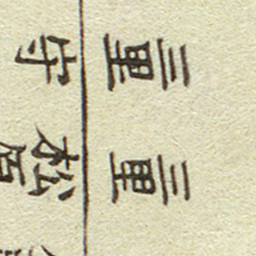 三里 松
三里 守